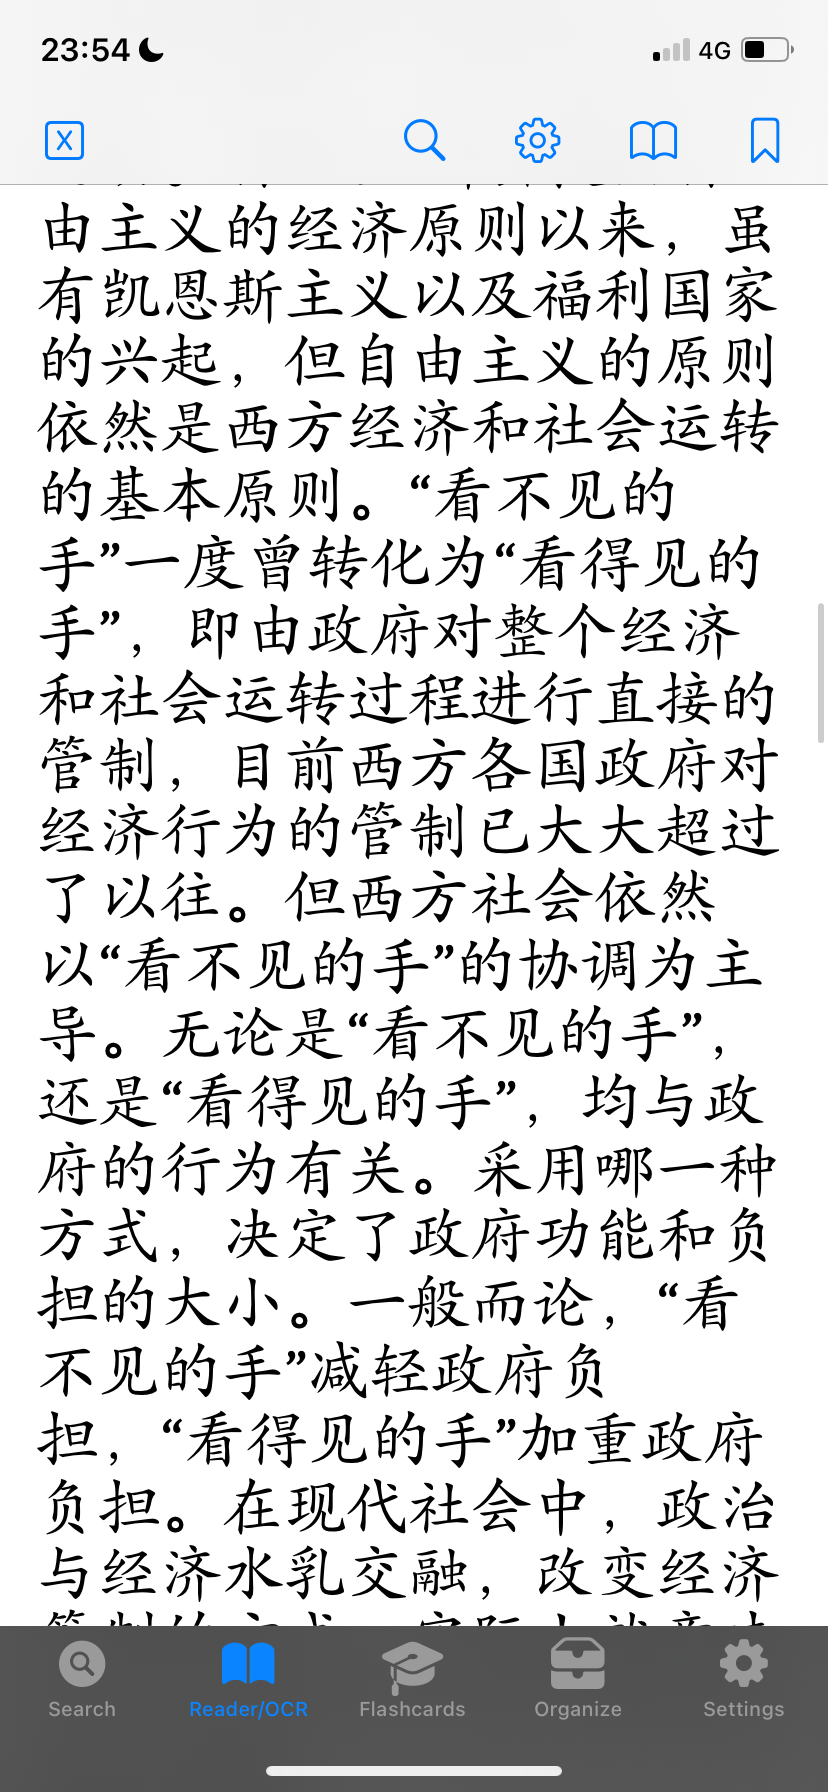 23:54
4G
由主义的经济原则以来，虽
有凯恩斯主义以及福利国家
的兴起，但自由主义的原则
依然是西方经济和社会运转
的基本原则。“看不见的
手”一度曾转化为“看得见的
手”，即由政府对整个经济
和社会运转过程进行直接的
管制，目前西方各国政府对
经济行为的管制已大大超过
了以往。但西方社会依然
以“看不见的手”的协调为主
导。无论是“看不见的手”，
还是“看得见的手”，均与政
府的行为有关。采用哪一种
方式，决定了政府功能和负
担的大小。一般而论，“看
不见的手”减轻政府负
担，“看得见的手”加重政府
负担。在现代社会中，政治
与经济水乳交融，改变经济
Search
Reader/OCR
Flashcards
Organize
Settings